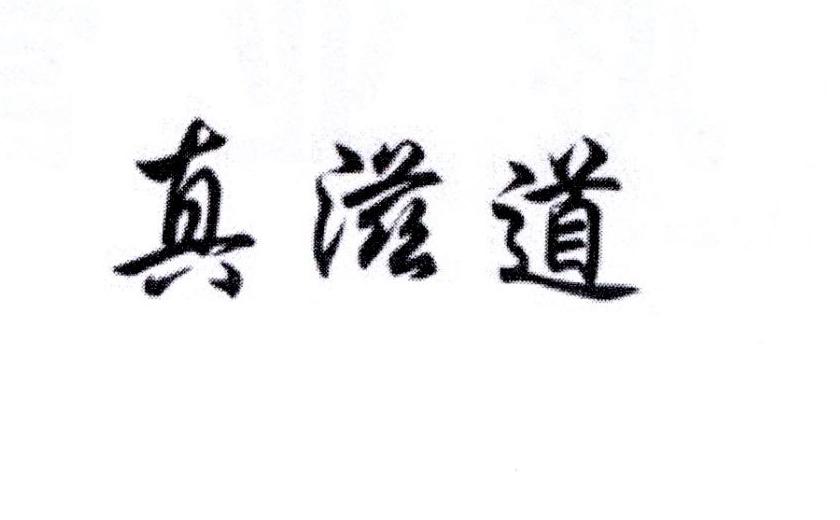 真滋道